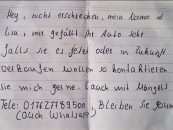 Hey, nicht erschrecken, mein Name ist
Lisa, mir gefällt Ihr Auto sehr
falls sie es jetzt oder in Zukunft
verkaufen wollen so kontaktieren
sie mich gerne. (auch mit Mängel)
Tele: 017627789500, Bleiben sie gesund
(auch WhatsApp)